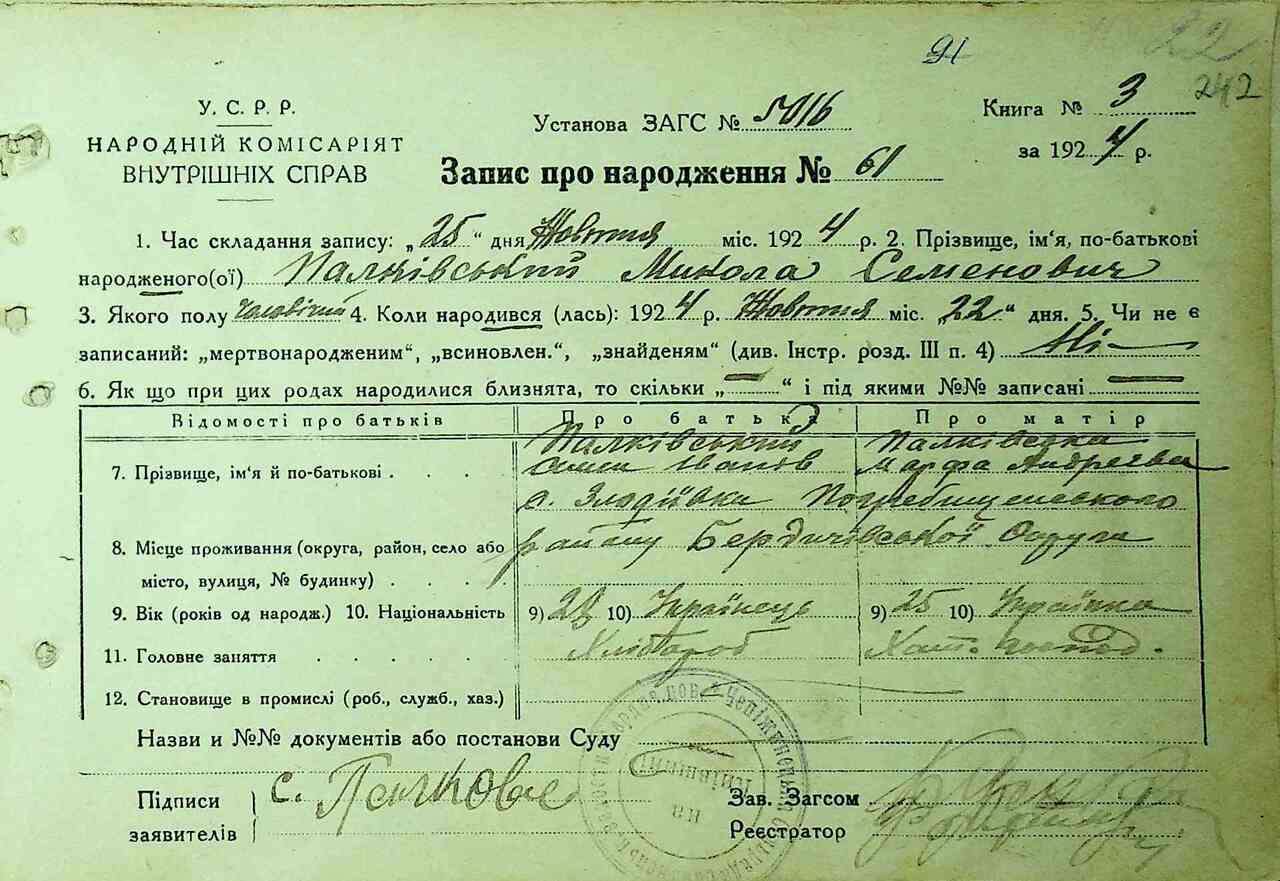 91
22
242
У. С. Р. Р.
НАРОДНІЙ КОМІСАРІЯТ
ВНУТРІШНІХ СПРАВ
Установа ЗАГС № 5016
Книга № 3
за 1924 р.
Запис про народження № 61
1. Час складання запису: „25“ дня Жовтня міс. 1924 р. 2. Прізвище, ім'я, по-батькові
народженого(ої) Палківський Микола Семенович
3. Якого полу чоловічий 4. Коли народився (лась): 1924 р. Жовтня міс. „22“ дня. 5. Чи не є
записаний: „мертвонародженим“, „всиновлен.“, „знайденям“ (див. Інстр. розд. III п. 4) Ні
6. Як що при цих родах народилися близнята, то скільки „—“ і під якими №№ записані —
Відомості про батьків Про батька Про матір
7. Прізвище, ім'я й по-батькові . . . Палківський Палківська
Іванов Марфа Андреева
с. Злодіївка Погребищенського
8. Місце проживання (округа, район, село або району Бердичівської Округи
місто, вулиця, № будинку) . . . .
9. Вік (років од народж.) 10. Національність 9) 28 10) Українець 9) 25 10) Українка
11. Головне заняття . . . . . Хлібороб Хат. господ.
12. Становище в промислі (роб., служб., хаз.)
Назви и №№ документів або постанови Суду
Підписи
заявителів
с. Палкове
Зав. Загсом
Реєстратор